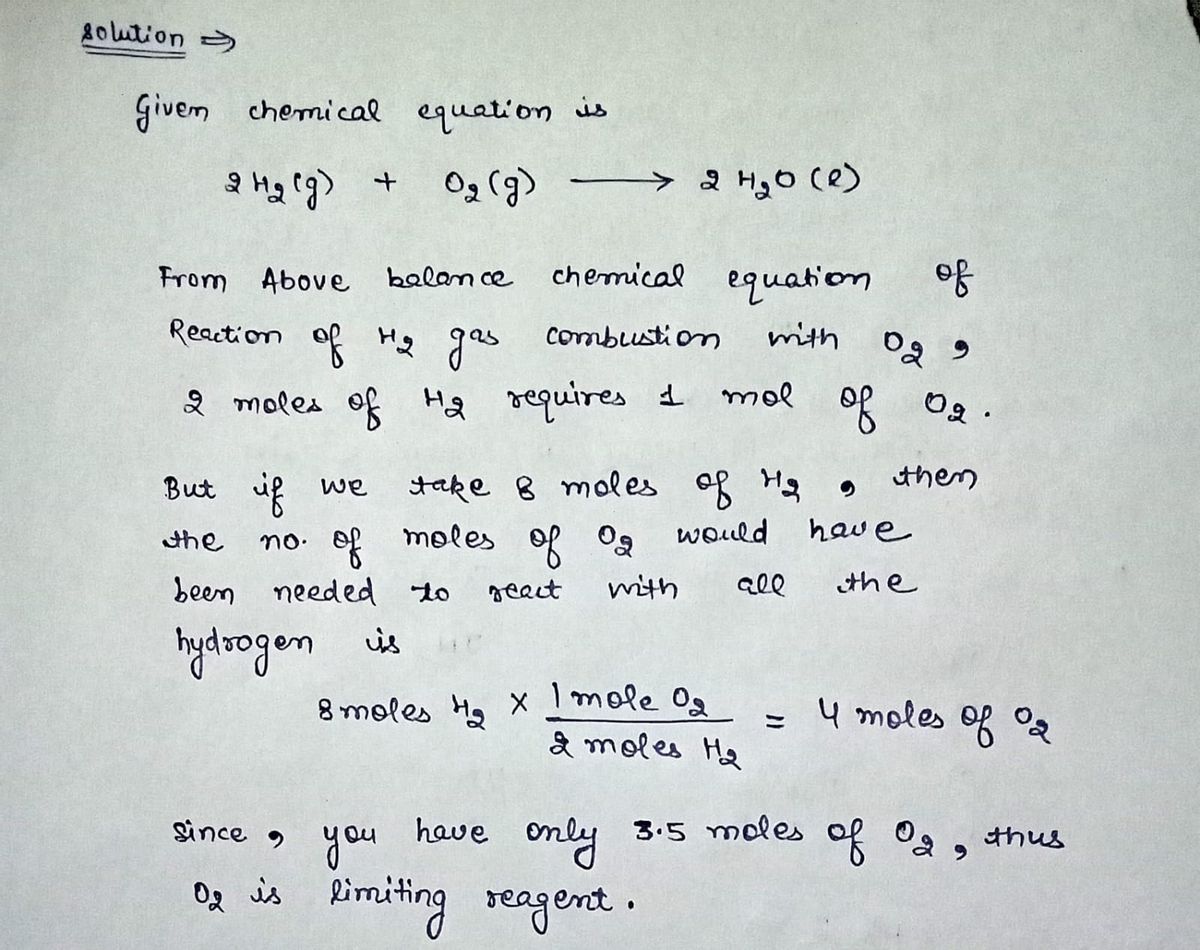 solution ⇒
Given chemical equation is
2 H₂ (g) + O₂ (g) ⟶ 2 H₂O (l)
From Above balance chemical equation of
Reaction of H₂ gas combustion with O₂ ,
2 moles of H₂ requires 1 mol of O₂ .
But if we take 8 moles of H₂ , then
the no. of moles of O₂ would have
been needed to react with all the
hydrogen is
8 moles H₂ × 1 mole O₂ / 2 moles H₂ = 4 moles of O₂
Since , you have only 3.5 moles of O₂ , thus
O₂ is limiting reagent .